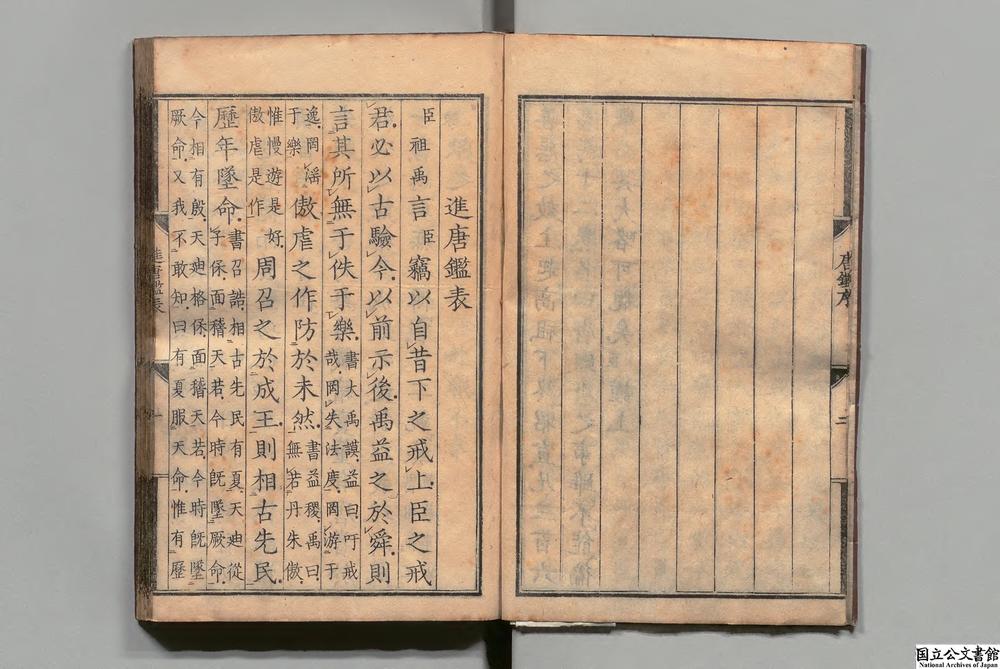 唐鑑序
二
進唐鑑表
臣祖禹言臣竊以自昔下之戒上臣之戒
君必以古驗今以前示後禹益之於舜則
言其所無于佚于樂
書大禹謨益曰吁戒
哉罔失法度罔游于
逸罔滛
于樂
傲虐之作防於未然
書益稷禹曰
無若丹朱傲
惟慢遊是好
傲虐是作
周召之於成王則相古先民
歷年墜命
書召誥相古先民有夏天迪從
子保面稽天若今時旣墜厥命
今相有殷天迪格保面稽天若今時旣墜
厥命又我不敢知曰有夏服天命惟有歷
進唐鑑表
一
国立公文書館
National Archives of Japan